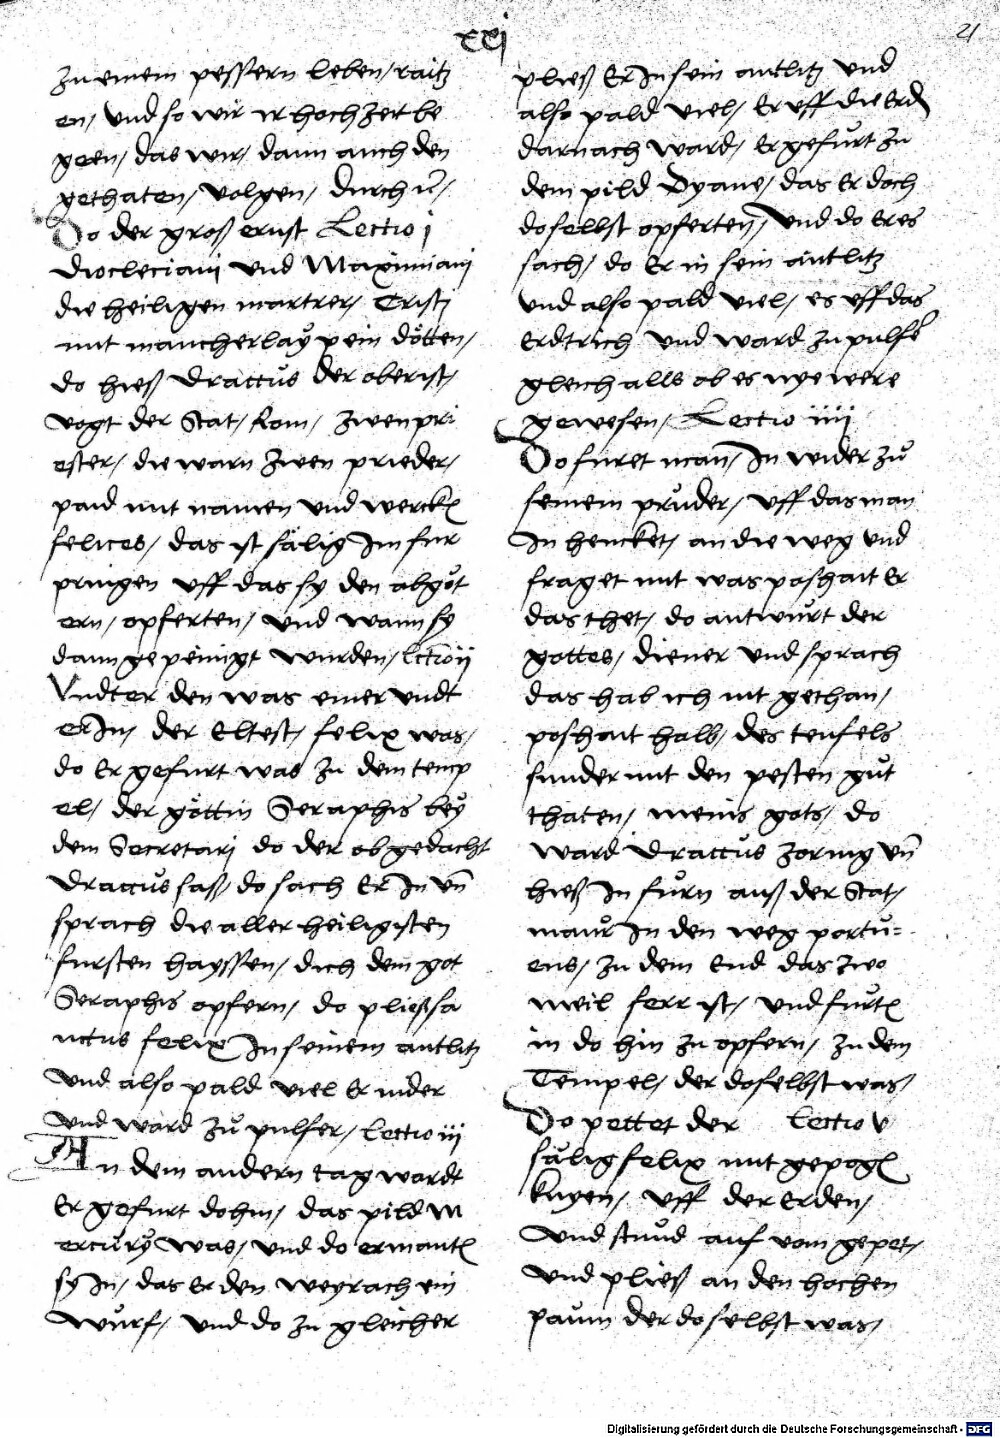 xxj
21
zu einem pessern leben / raitz
en / Und so wir ir hochzeit be
geen / das wir / dann auch den
gethaten / volgen / durch
Do der groß ernst Lectio j
diocleciani und Maximiani
die heiligen martrer / Cristi
mit mancherlaÿ pein dötten /
do hieß dractus der oberist /
vogt der Stat / Rom / zwen pri
ester / die warn zwen prieder /
paid mit namen und werckn
felices / das ist sälig Im fur
pringen uff das sy den abgöt
ern / opferten / und wann sy
dann gepeinigt wurden / lctio ij
Vndter den was einer undt
er In / der Eltest / felix was /
do Er gefurt was zu dem temp
el / der göttin Seraphis beÿ
dem Secretari do der obgedacht
dractus saß / do sach Er In vn̄
sprach die aller heiligisten
fursten hayssen / dich dem got
Seraphis opfern / do pließ sa
nctus felix In seinem antlitz
und also pald viel Er nider
und ward zu pulfer / Lectio iij
An dem andern tag wardt
Er gefurt dohin / das pild M
ercurÿ was / und do ermantn
sy In / das Er den weyrach ein
wurf / und do zu gleicher
pließ Er In sein antlitz und
also pald viel / Er uff die Erd
darnach ward / Er gefurt zu
dem pild Dyane / das Er doch
doselbst opferten / und do Er es
sach / do Er in sein antlitz
und also pald viel / es uff das
Erdtrich und ward zu pulfer
gleich alls ob es nye were
gewesen / Lectio iiij
Do furet man / In wider zu
seinem pruder / uff das man
In hencket / an die weg und
fraget mit was poshait Er
das thet / do antwurt der
gottes / diener und sprach
das hab ich nit gethan /
poshait halb / des teufels
sunder mit den pesten gut
thaten / meins gots / do
ward dractus zornig vn̄
hieß In furn auß der Stat /
maur In den weg portu=
ens / zu dem End das zwo
meil ferr ist / und furtn
in do hin zu opfern / zu dem
Tempel / der doselbst was /
Do pettet der Lectio v
sälig felix mit gepogn
knyen / uff der Erden /
und stund auf vom gepet /
und pließ an den hochen
paum der doselbst was /
Digitalisierung gefördert durch die Deutsche Forschungsgemeinschaft - DFG